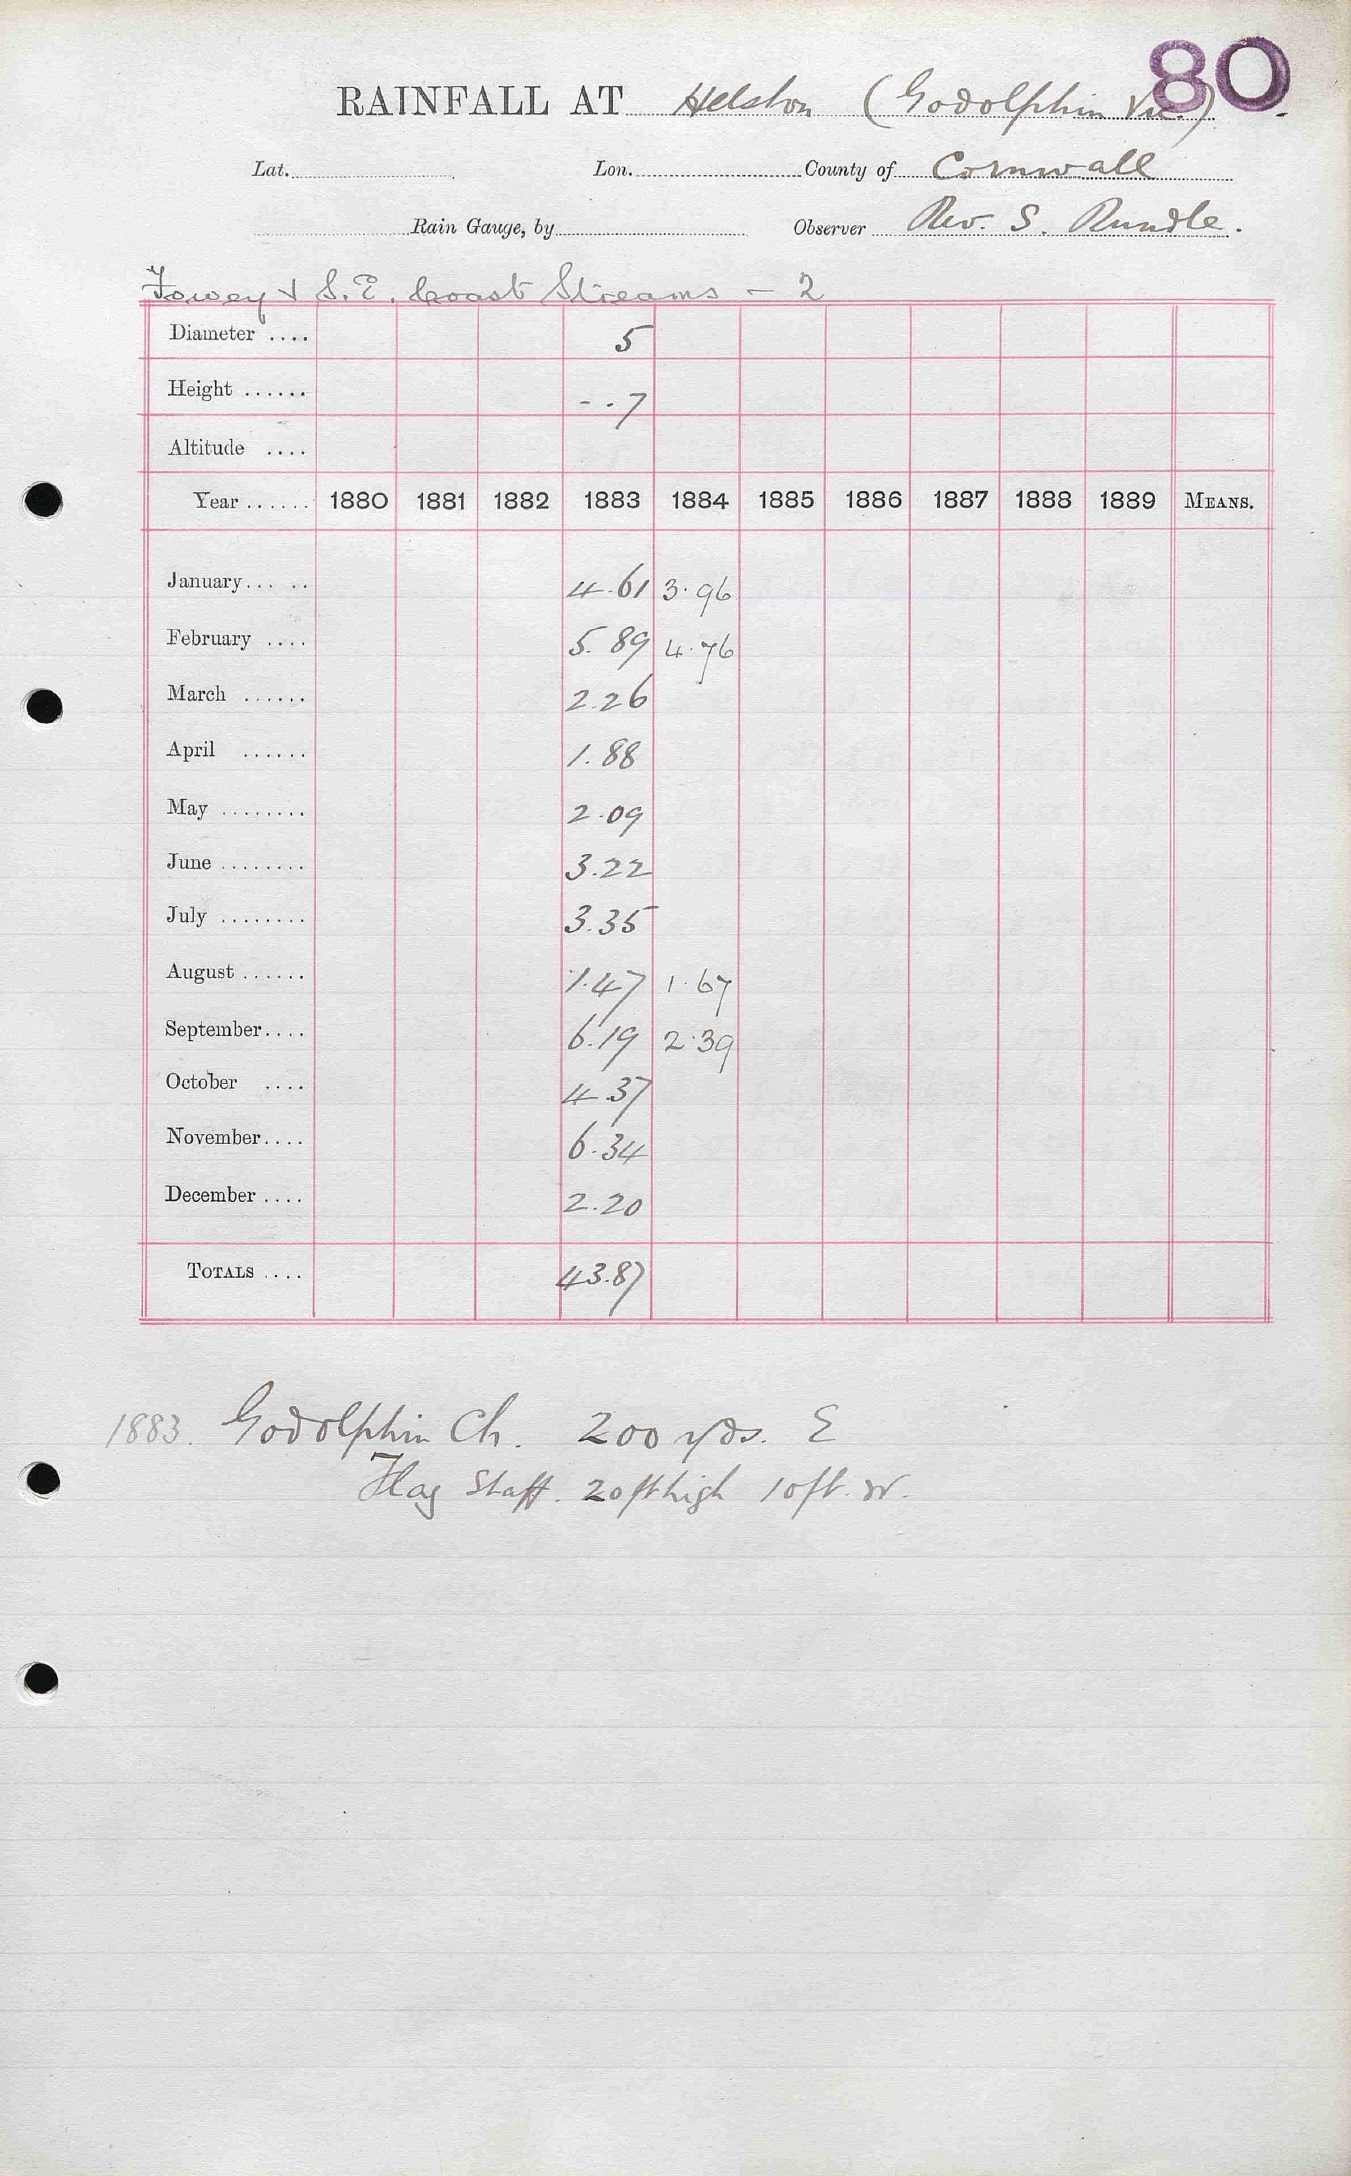 80
RAINFALL AT Helston (Godolphin Vic.)
Lat. Lon. County of Cornwall
Rain Gauge, by Observer Rev. S. Rundle.
Fowey & S.E. Coast Streams - 2
Diameter .... 5
Height ...... - .7
Altitude ....
Year ...... 1880 1881 1882 1883 1884 1885 1886 1887 1888 1889 MEANS.
January... .. 4.61 3.96
February .... 5.89 4.76
March ...... 2.26
April ...... 1.88
May ........ 2.09
June ........ 3.22
July ........ 3.35
August ...... 1.47 1.67
September.... 6.19 2.39
October .... 4.37
November.... 6.34
December .... 2.20
TOTALS .... 43.87
1883. Godolphin Ch. 200 yds. E
Flag Staff. 20ft high 10ft. W.